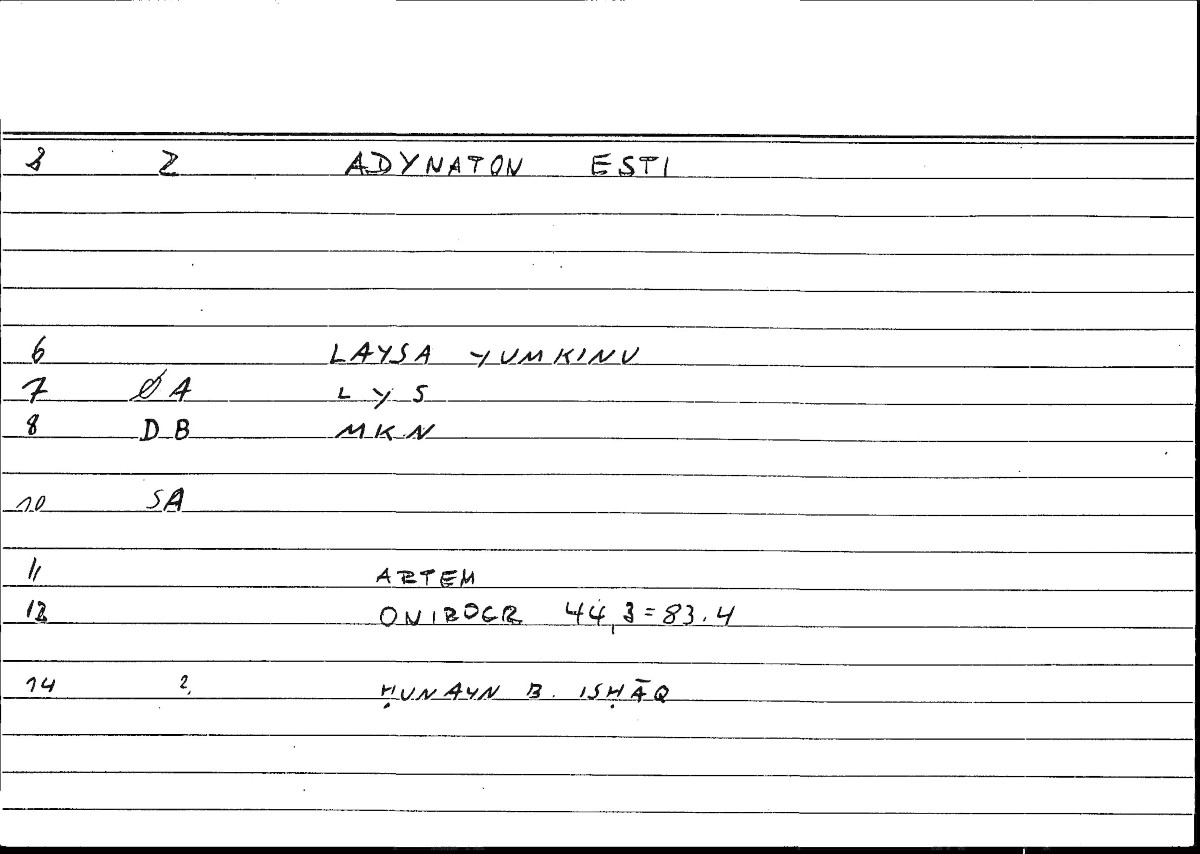 3 Z ADYNATON ESTI
6 LAYSA YUMKINU
7 ØA L Y S
8 DB MKN
10 SA
11 ARTEM
12 ONIROCR 44,3=83.4
14 2. ḤUNAYN B. ISḤĀQ